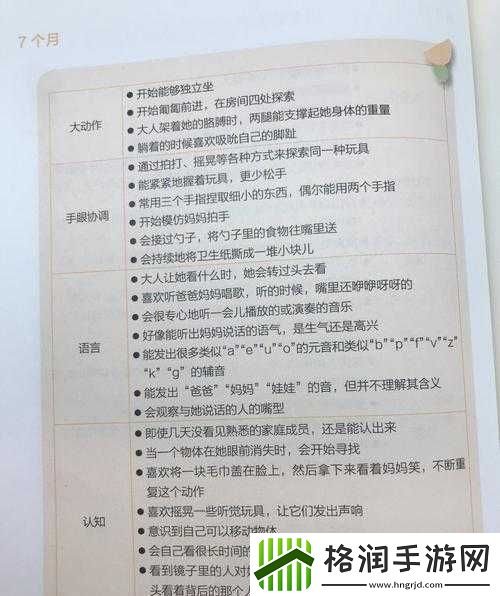 7个月
大动作
● 开始能够独立坐
● 开始匍匐前进，在房间四处探索
● 大人架着她的胳膊时，两腿能支撑起她身体的重量
● 躺着的时候喜欢吸吮自己的脚趾
手眼协调
● 通过拍打、摇晃等各种方式来探索同一种玩具
● 能紧紧地握着玩具，更少松手
● 常用三个手指捏取细小的东西，偶尔能用两个手指
● 开始模仿妈妈拍手
● 会接过勺子，将勺子里的食物往嘴里送
● 会持续地将卫生纸撕成一堆小块儿
语言
● 大人让她看什么时，她会转过头去看
● 喜欢听爸爸妈妈唱歌，听的时候，嘴里还咿咿呀呀的
● 会很专心地听一会儿播放的或演奏的音乐
● 好像能听出妈妈说话的语气，是生气还是高兴
● 能发出很多类似“a”“e”“u”“o”的元音和类似“b”“p”“f”“v”“z”
“k”“g”的辅音
● 能发出“爸爸”“妈妈”“娃娃”的音，但并不理解其含义
● 会观察与她说话的人的嘴型
认知
● 即使几天没看见熟悉的家庭成员，还是能认出来
● 当一个物体在她眼前消失时，会开始寻找
● 喜欢将一块毛巾盖在脸上，然后拿下来看着妈妈笑，不断重
复这个动作
● 喜欢摇晃一些听觉玩具，让它们发出声响
● 意识到自己可以移动物体
● 会自己看很长时间的
● 看到镜子里的人对她
头看着背后的那个人
格润手游网
www.hngrjd.com